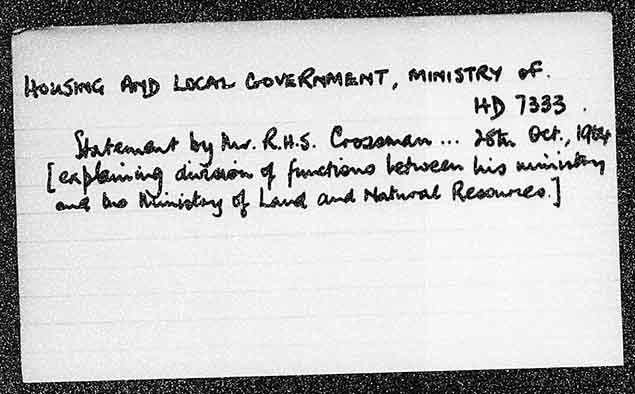 HOUSING AND LOCAL GOVERNMENT, MINISTRY of.
HD 7333.
Statement by Mr. R.H.S. Crossman ... 28th Oct., 1964
[explaining division of functions between his ministry
and the Ministry of Land and Natural Resources.]